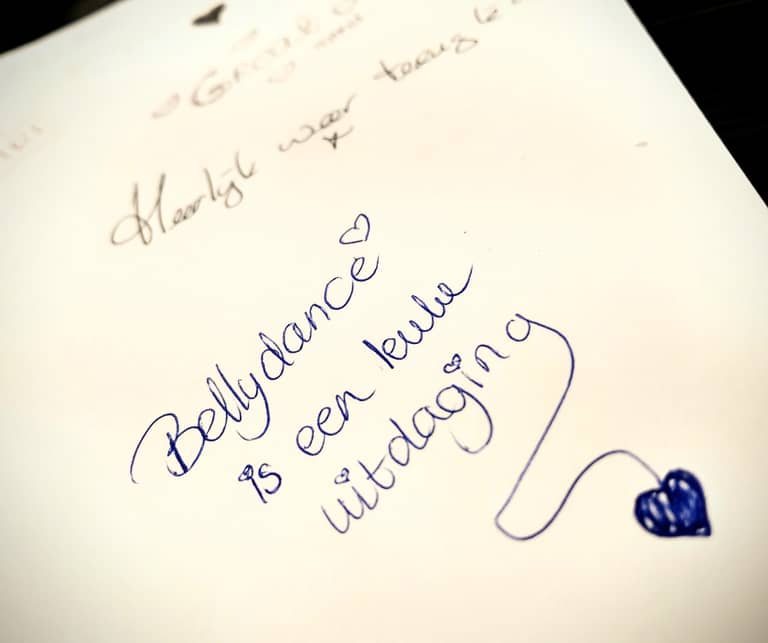 Heerlijk weer terug te
Bellydance
is een leuke
uitdaging